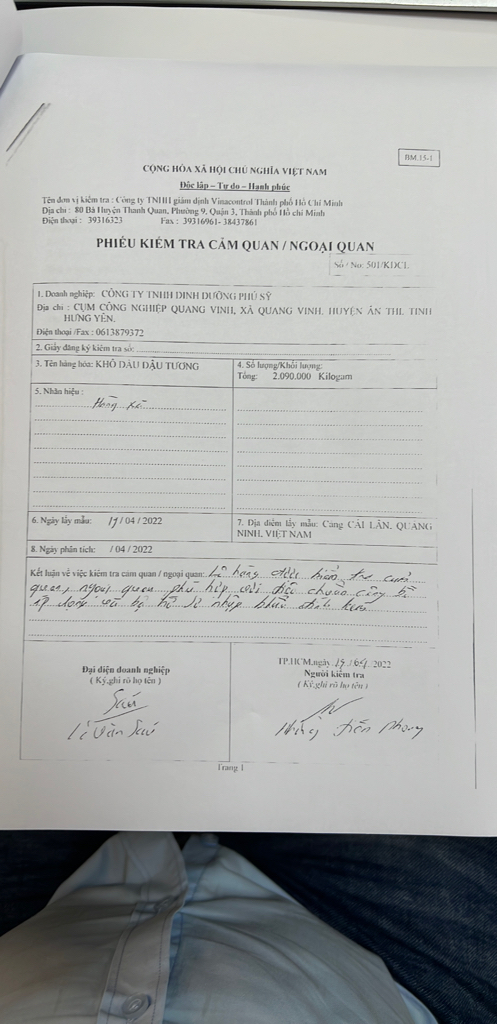 BM.15-1
CỘNG HÒA XÃ HỘI CHỦ NGHĨA VIỆT NAM
Độc lập – Tự do – Hạnh phúc
Tên đơn vị kiểm tra : Công ty TNHH giám định Vinacontrol Thành phố Hồ Chí Minh
Địa chỉ : 80 Bà Huyện Thanh Quan, Phường 9, Quận 3, Thành phố Hồ chí Minh
Điện thoại : 39316323 Fax : 39316961- 38437861
PHIẾU KIỂM TRA CẢM QUAN / NGOẠI QUAN
Số / No: 501/KDCL
1. Doanh nghiệp: CÔNG TY TNHH DINH DƯỠNG PHÚ SỸ
Địa chỉ : CỤM CÔNG NGHIỆP QUANG VINH, XÃ QUANG VINH, HUYỆN ÂN THI, TỈNH
HƯNG YÊN.
Điện thoại /Fax : 0613879372
2. Giấy đăng ký kiểm tra số:
3. Tên hàng hóa: KHÔ DẦU ĐẬU TƯƠNG
4. Số lượng/Khối lượng:
Tổng: 2.090.000 Kilogam
5. Nhãn hiệu :
Hàng xá
6. Ngày lấy mẫu: 19/ 04 / 2022
7. Địa điểm lấy mẫu: Cảng CÁI LÂN, QUẢNG
NINH, VIỆT NAM
8. Ngày phân tích: / 04 / 2022
Kết luận về việc kiểm tra cảm quan / ngoại quan: Lô hàng được kiểm tra cảm
quan, ngoại quan phù hợp với tiêu chuẩn công bố
áp dụng và bộ hồ sơ nhập khẩu đính kèm
Đại diện doanh nghiệp
( Ký,ghi rõ họ tên )
Sáu
Lê Văn Sáu
TP.HCM,ngày 19 / 04 / 2022
Người kiểm tra
( Ký,ghi rõ họ tên )
Tiến Phong
Trang 1